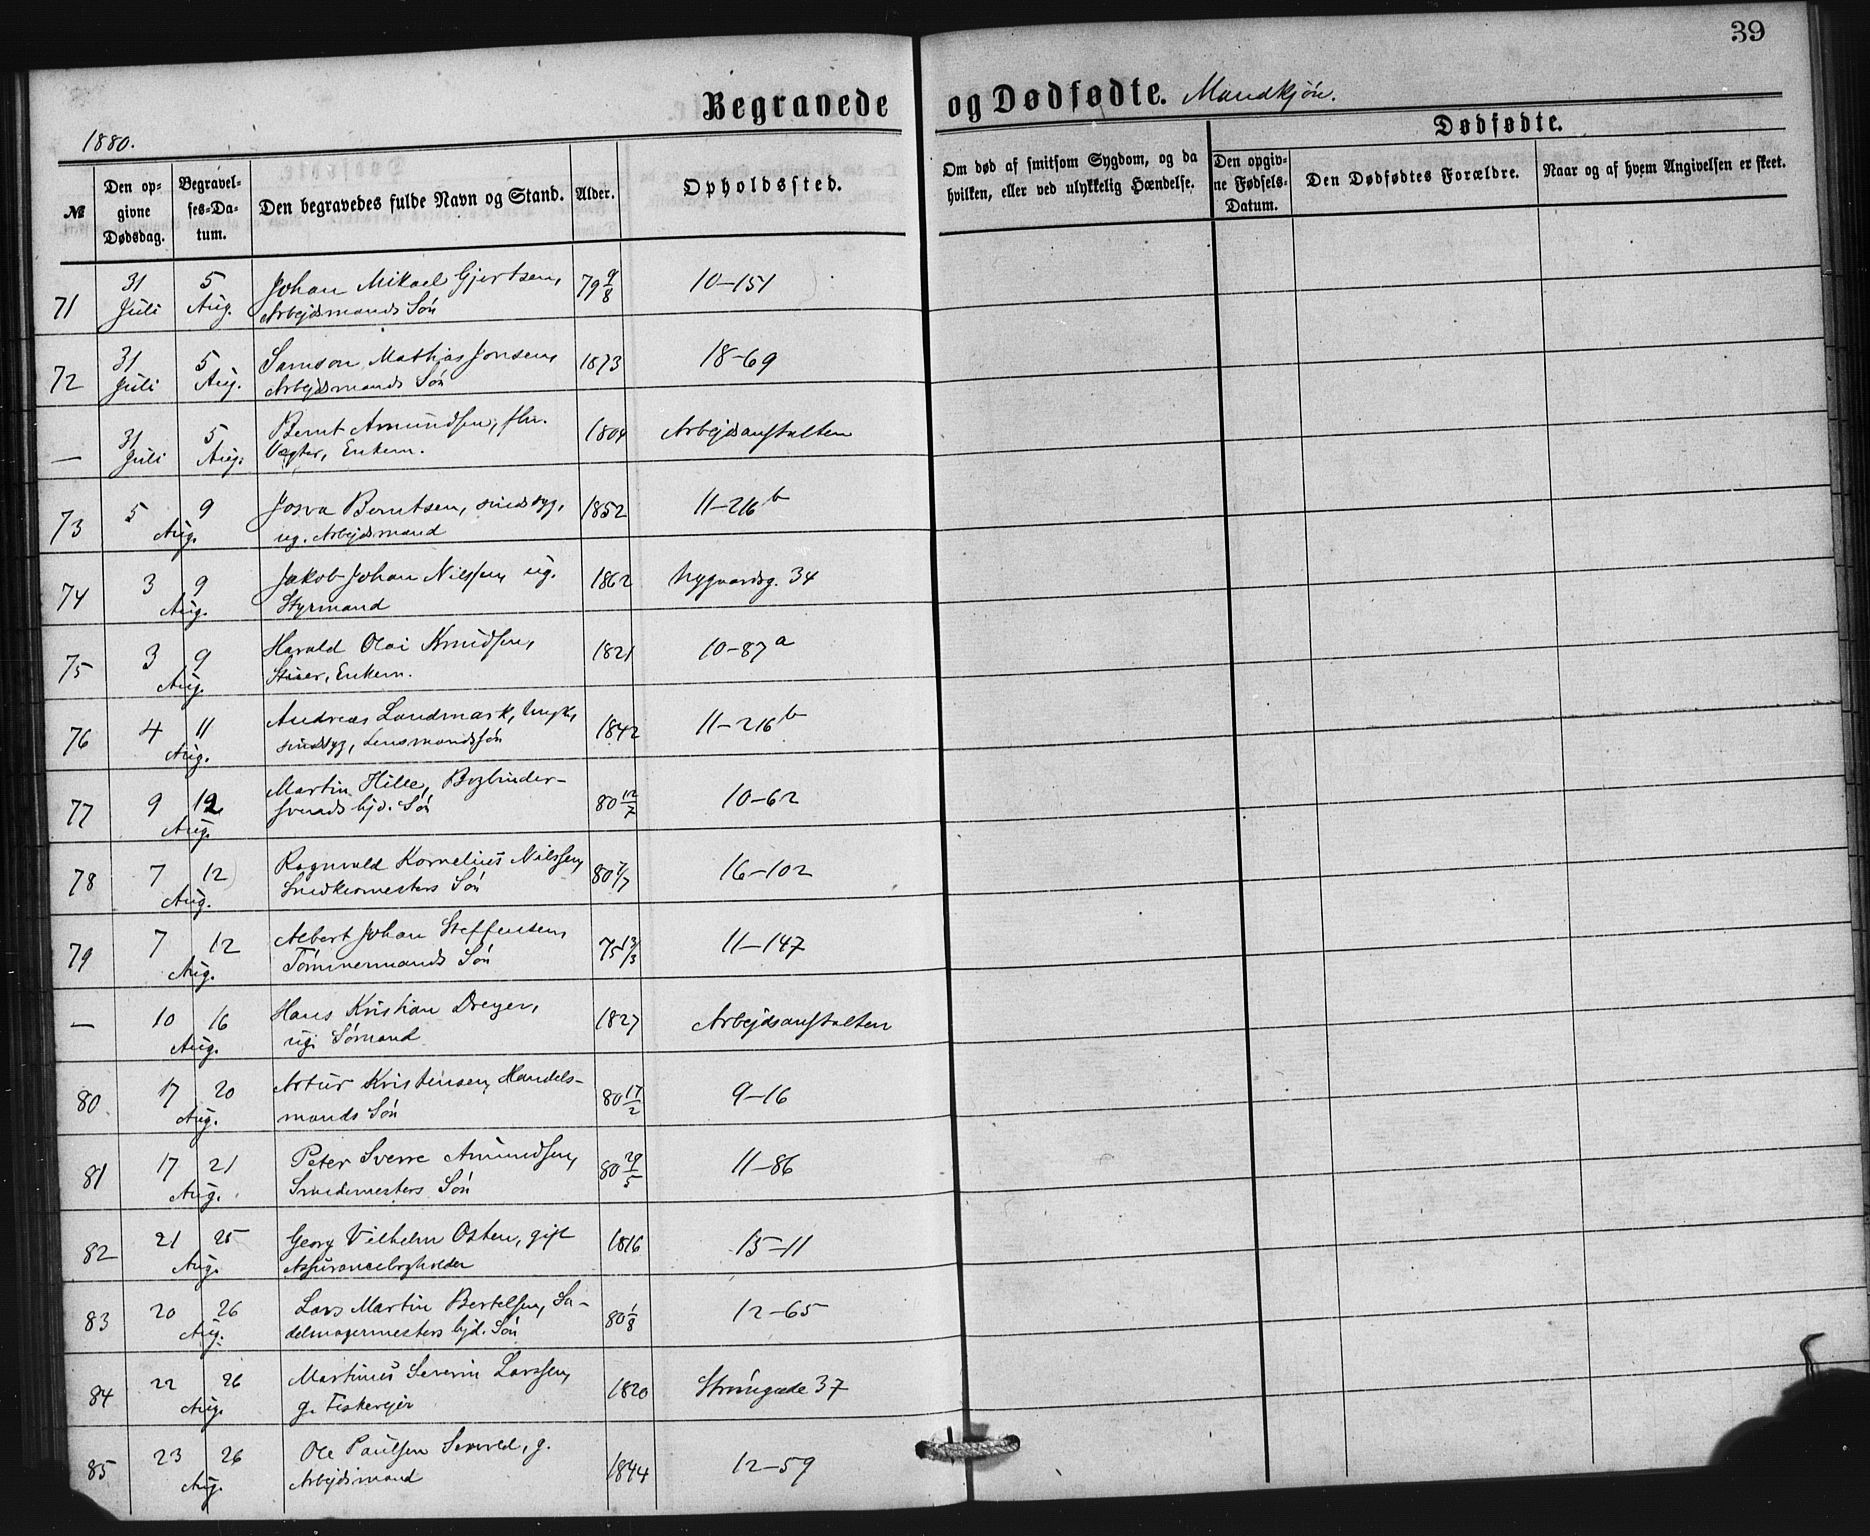 39
Begravede og Dødfødte. Mandkjøn.
1880.
Dødfødte.
№
Den op-
givne
Dødsdag.
Begravel-
ses-Da-
tum.
Den begravedes fulde Navn og Stand.
Alder.
Opholdssted.
Om død af smitsom Sygdom, og da
hvilken, eller ved ulykkelig Hændelse.
Den opgiv-
ne Fødsels-
Datum.
Den Dødfødtes Forældre.
Naar og af hvem Angivelsen er skeet.
71 31 Juli 5 Aug. Johan Mikael Gjertsen, 79 9/8 10-151
Arbejdsmands Søn
72 31 Juli 5 Aug. Samson Mathias Jonsen, 1873 18-69
Arbejdsmands Søn
— 31 Juli 5 Aug. Bernt Amundsen, fhv. 1804 Arbejdsanstalten
Vægter, Enkem.
73 5 9 Aug. Josva Berntsen, sindssyg, 1852 11-216 b
ug. Arbejdsmand
74 3 9 Aug. Jakob Johan Nilssen, ug. 1862 Nygaardsg. 34
Styrmand
75 3 9 Aug. Harald Olai Knudsen, 1821 10-87 a
Enkem.
76 4 11 Aug. Andreas Landmark, 1842 11-216 b
sindssyg, Lensmandssøn
77 9 12 Aug. Martin Hille, Bogbinder- 80 12/7 10-62
svends Søn
78 7 12 Aug. Ragnvald Kornelius Nilssen, 80 7/7 16-102
Snedkermesters Søn
79 7 12 Aug. Albert Johan Steffensen, 75 13/3 11-147
Tømmermands Søn
— 10 16 Aug. Hans Kristian Dreyer, 1827 Arbejdsanstalten
ug. Sømand
80 17 20 Aug. Artur Kristensen, Handels- 80 17/2 9-16
mands Søn
81 17 21 Aug. Peter Sverre Amundsen, 80 29/5 11-86
Smedemesters Søn
82 21 25 Aug. Georg Vilhelm Osten, gift 1816 15-11
Assurancebogholder
83 20 26 Aug. Lars Martin Bertelsen, Sa- 80 1/8 12-65
delmagermesters Søn
84 22 26 Aug. Martinus Severin Larssen, 1820 Strangade 37
g. Fiskevejer
85 23 26 Aug. Ole Paulsen g. 1844 12-59
Arbejdsmand